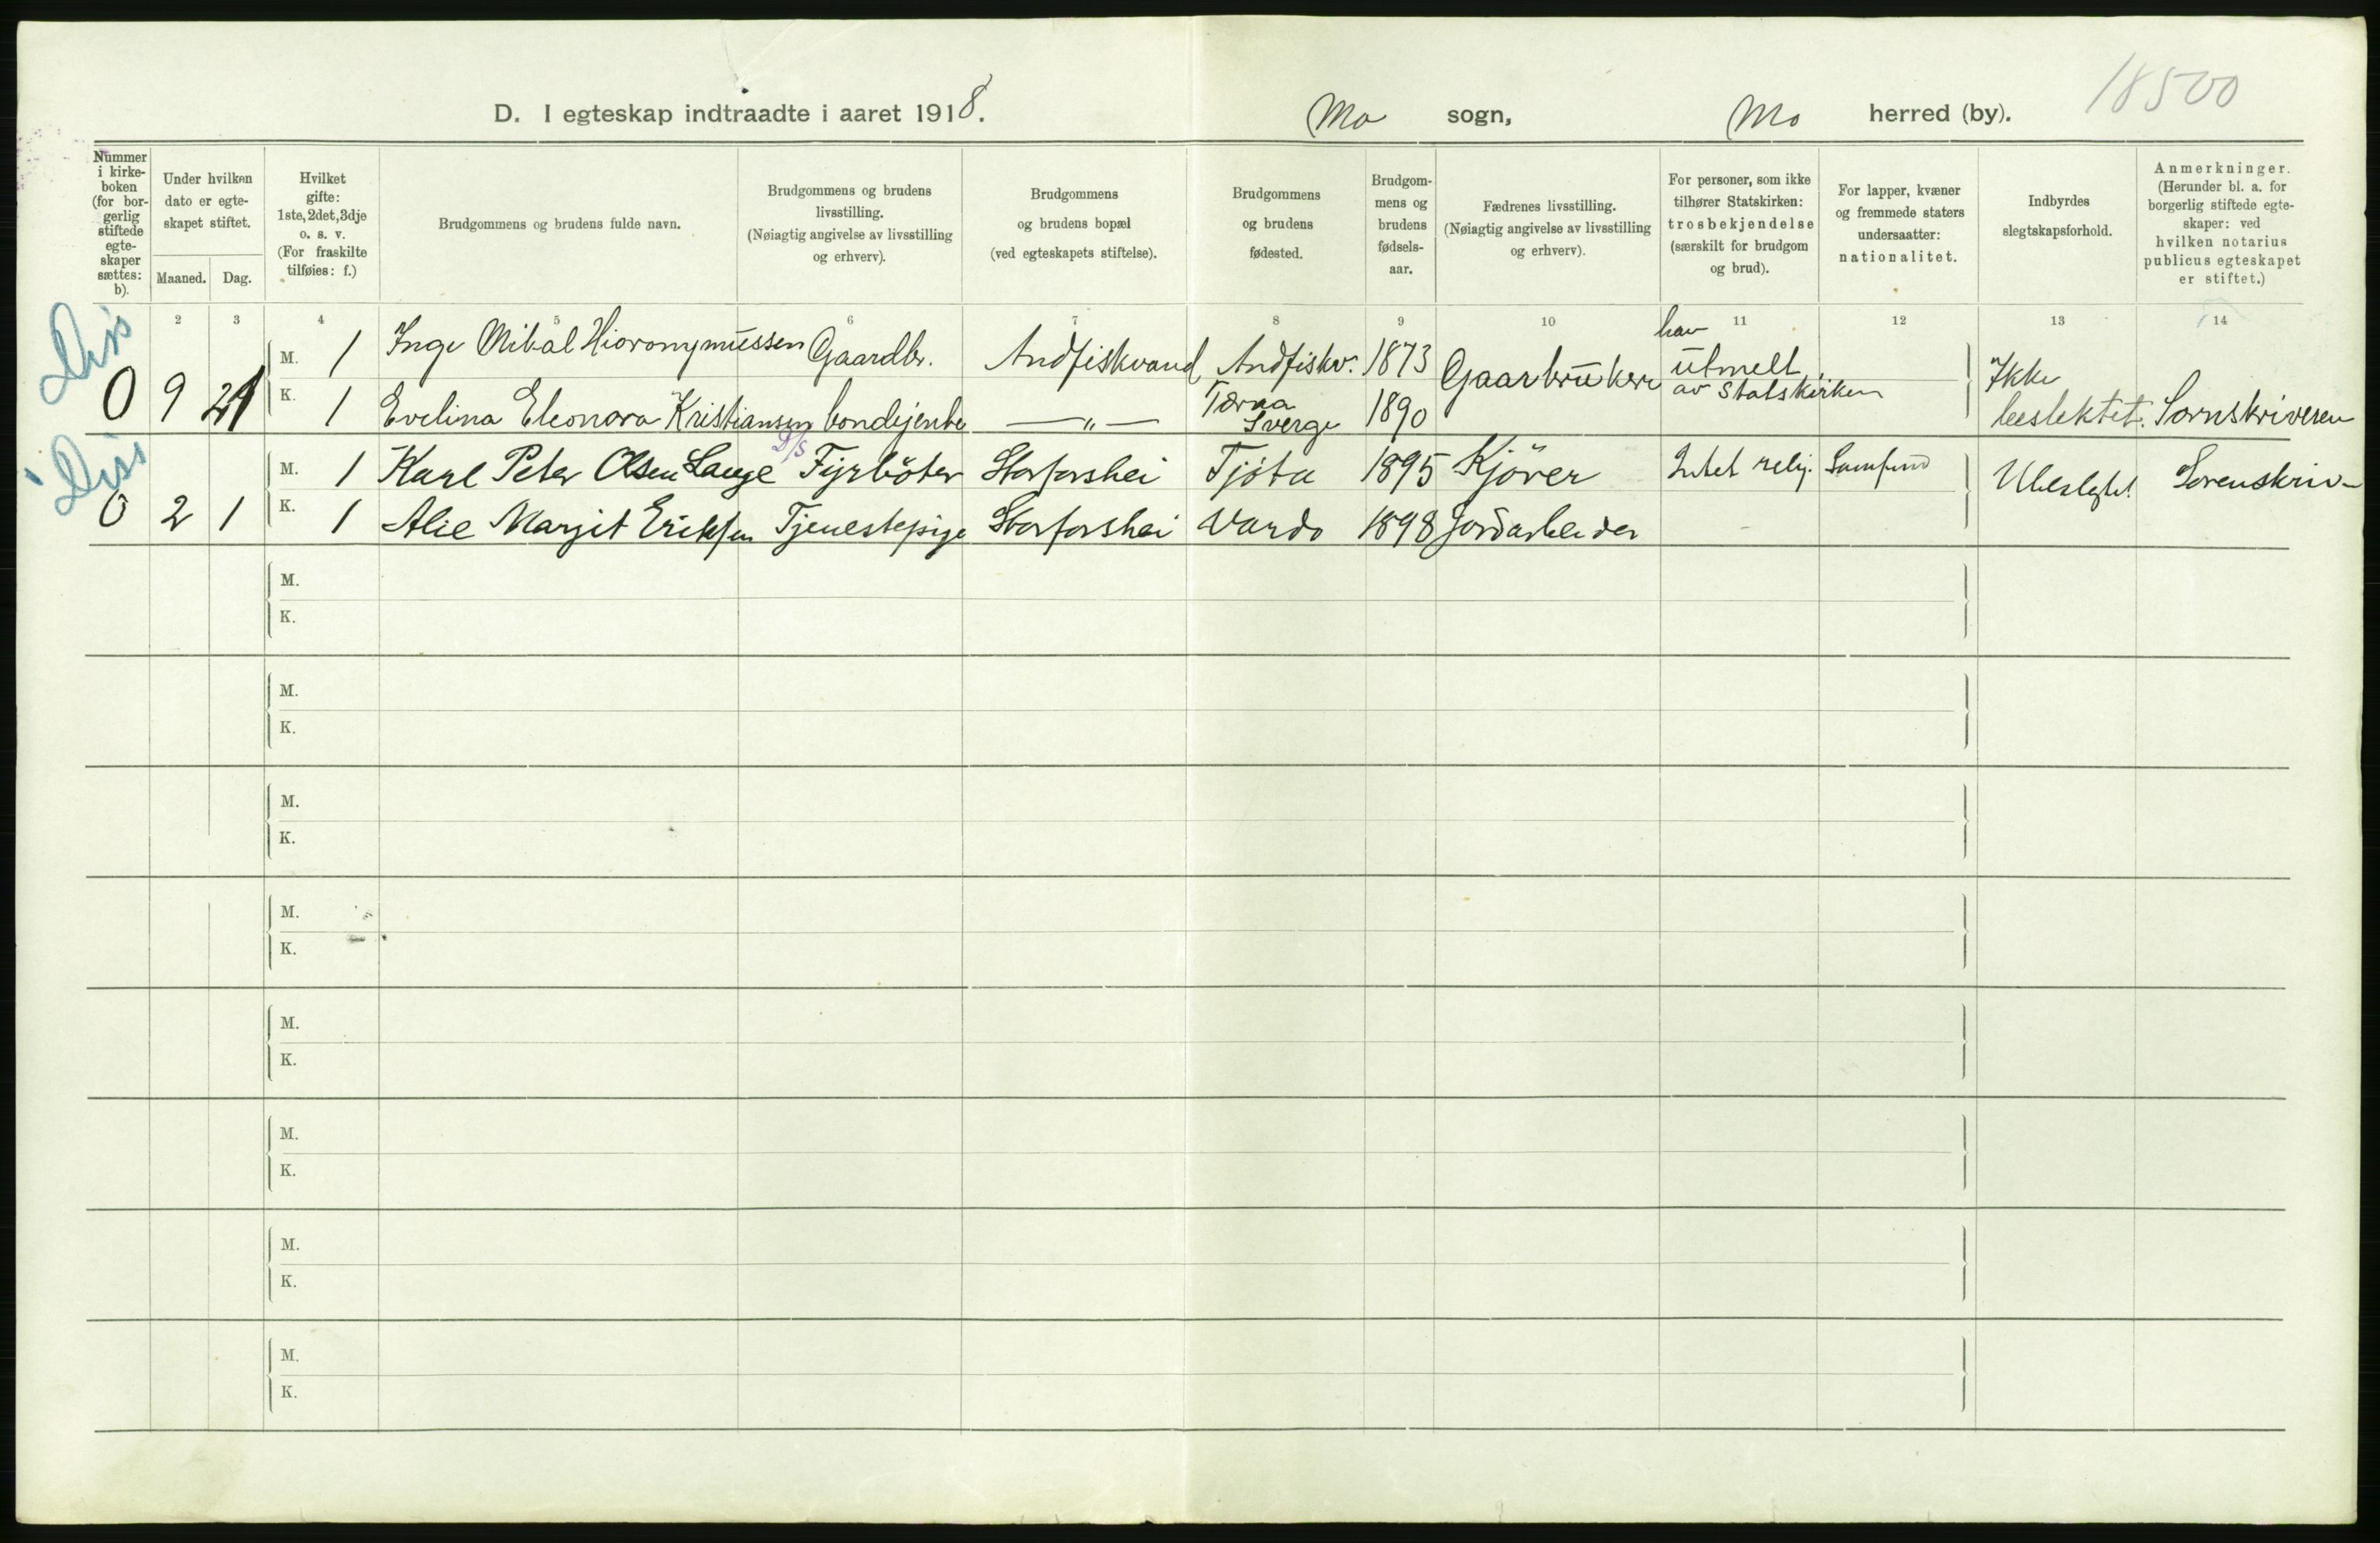 18500
D. I egteskap indtraadte i aaret 1918. Mo sogn, Mo herred (by).
Nummer i kirke-boken (for bor-gerlig stiftede egte-skaper sættes: b).
Under hvilken dato er egte-skapet stiftet.
Maaned. Dag.
Hvilket gifte: 1ste, 2det, 3dje o. s. v. (For fraskilte tilføies: f.)
Brudgommens og brudens fulde navn.
Brudgommens og brudens livsstilling. (Nøiagtig angivelse av livsstilling og erhverv).
Brudgommens og brudens bopæl (ved egteskapets stiftelse).
Brudgommens og brudens fødested.
Brudgom-mens og brudens fødsels-aar.
Fædrenes livsstilling. (Nøiagtig angivelse av livsstilling og erhverv).
For personer, som ikke tilhører Statskirken: trosbekjendelse (særskilt for brudgom og brud).
For lapper, kvæner og fremmede staters undersaatter: nationalitet.
Indbyrdes slegtskapsforhold.
Anmerkninger. (Herunder bl. a. for borgerlig stiftede egte-skaper: ved hvilken notarius publicus egteskapet er stiftet.)
2 3 4 5 6 7 8 9 10 11 12 13 14
Diss
M. 1 Inge Mikal Hioronymussen Gaardbr. Andfiskvand Andfiskv. 1873 Gaarbrukere hav utmelt Ikke
0 9 21 K. 1 Evelina Eleonora Kristiansen bondejente —"— Tærna Sverge 1890 av Statskirken beslektet. Sornskriveren
Diss
M. 1 Karl Peter Olsen Lauge D/S Fyrböter Storforshei Tjóta 1895 Kjörer Intet relig. Samfund Ubeslegtet Sorenskriv-
0 2 1 K. 1 Alie Margit Eriksen Tjenestepige Storforshei Vardo 1898 Jordarbeider
M.
K.
M.
K.
M.
K.
M.
K.
M.
K.
M.
K.
M.
K.
M.
K.